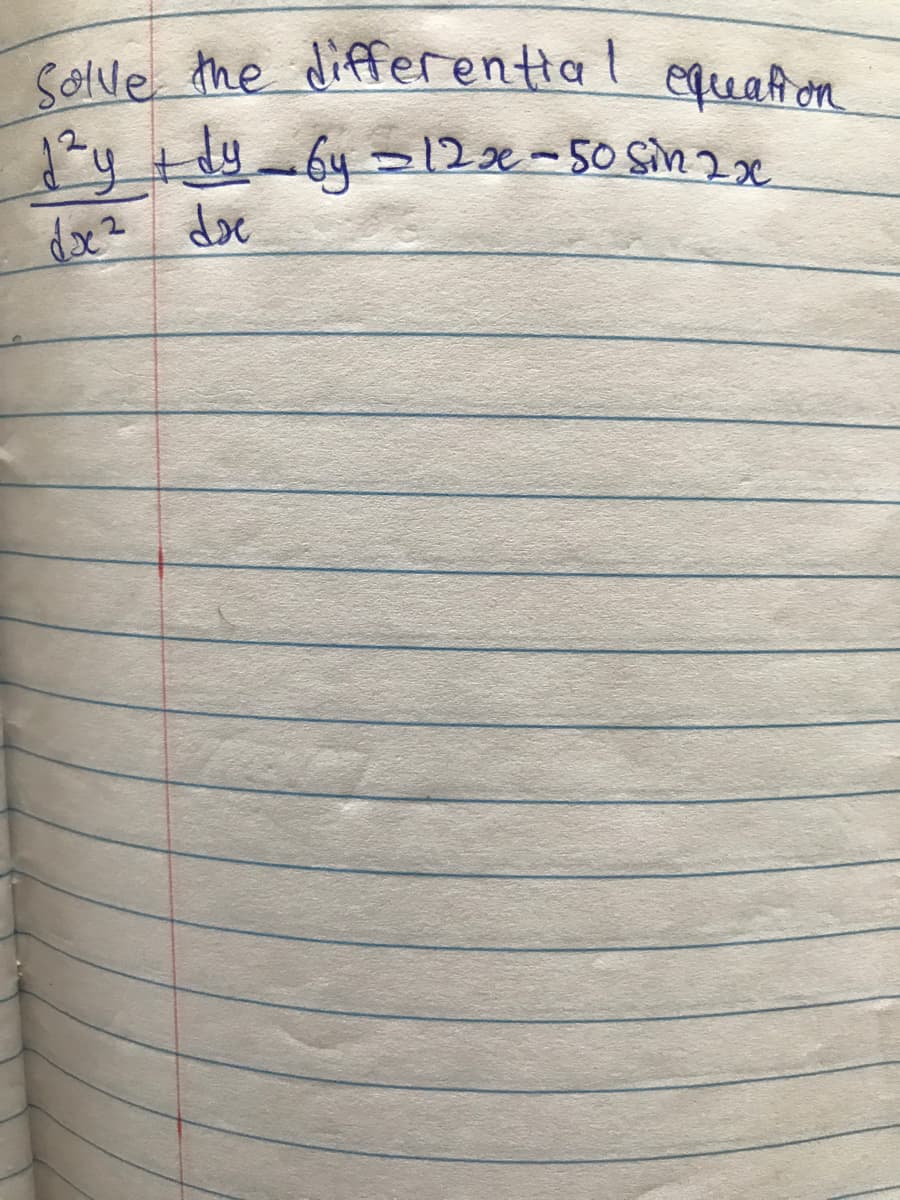 Solve the differential equation
d²y/dx² + dy/dx - 6y = 12x - 50 sin 2x